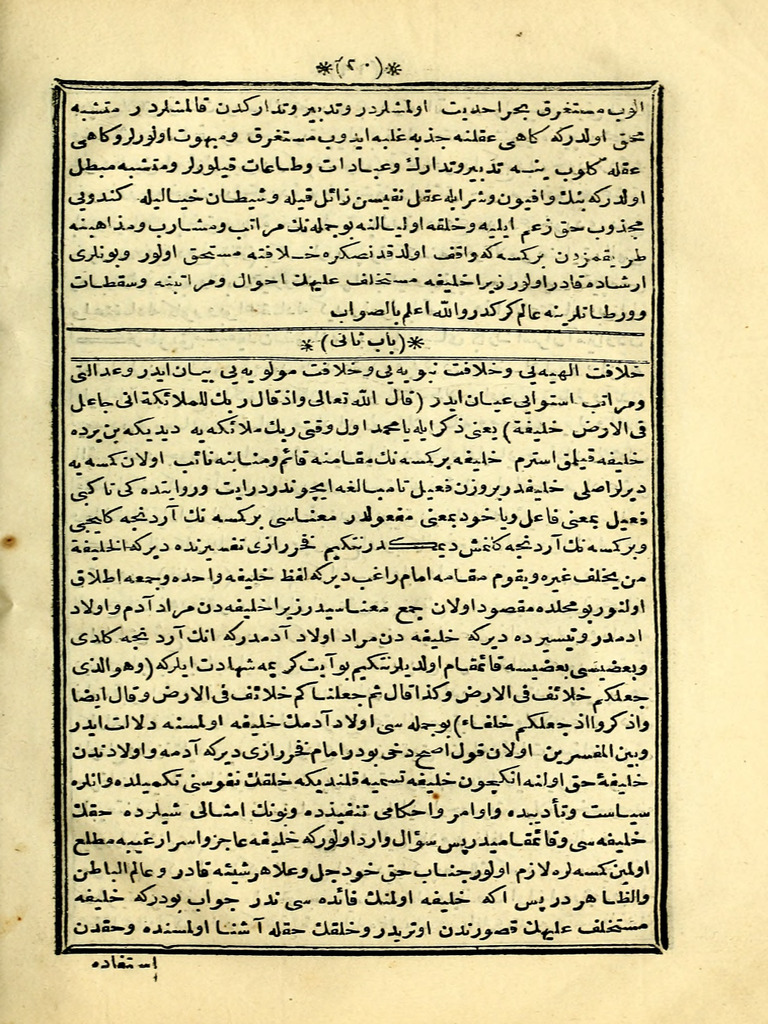 *(٢٠)*
الوب مستغرق بحر احديت اولمشلردر وتدبير وتداركدن قالمشلردر متشبه
محق اولدركه كاهى عقلنه جذبه غلبه ايدوب مستغرق ومبهوت اولورلر وكاهى
عقله كلوب ينه تدبير وتدارك وعبادات وطاعات قيلورلر ومتشبه مبطل
اولدركه بنك وافيون وشرابله عقل نفيسن زائل قيله وشيطان خياليله كندويى
مجذوب حق زعم ايليه وخلقه اوليالنه بو جمله نك مراتب ومشارب ومذاهبنه
طريقمزدن بركسه كه واقف اولدقدنصكره خلافته مستحق اولور وبونلرى
ارشاده قادر اولور زيرا خليفه مستخلف عليهك احوال ومراتبنه وسقطات
وورطاتلرينه عالم كركدر والله اعلم بالصواب
*(باب ثانى)*
خلافت الهيه يى وخلافت نبويه يى وخلافت مولويه يى بيان ايدر وعدالتى
ومراتب استوايى عيان ايدر (قال الله تعالى واذ قال ربك للملائكة انى جاعل
فى الارض خليفة) يعنى ذكر ايله يا محمد اول وقتى ربك ملائكه يه ديديكه بن يرده
خليفه قيلمق استرم خليفه بركسه نك مقامنه قائم ومنابنه نائب اولان كسه يه
ديرلر اصلى خليفدر بروزن فعيل تا مبالغه ايچوندر درايت وروايتده كى تا كبى
فعيل بمعنى فاعل ويا خود بمعنى مفعولدر معناسى بركسه نك آردنجه كليجى
وبركسه نك آردنجه كلمش ديمكدر نتكيم فخر رازى تفسيرنده ديركه الخليفة
من يخلف غيره ويقوم مقامه امام راغب ديركه لفظ خليفه واحده وجمعه اطلاق
اولنور بو محلده مقصود اولان جمع معناسيدر زيرا خليفه دن مراد آدم واولاد
ادمدر وتيسير ده ديركه خليفه دن مراد اولاد آدمدركه انك آردنجه كلدى
وبعضيسى بعضيسه قائمقام اولديلر نتكيم بو آيت كريمه شهادت ايلركه (وهو الذى
جعلكم خلائف فى الارض وكذا قال ثم جعلناكم خلائف فى الارض وقال ايضا
واذكروا اذ جعلكم خلفاء) بو جمله سى اولاد آدمك خليفه اولمسنه دلالت ايدر
وبين المفسرين اولان قول اصح دخى بودر امام فخر رازى ديركه آدمه واولادندن
خليفۀ حق اولنه انكچون خليفه تسميه قلنديكه خلقك نفوسنى تكميلده وانلره
سياست وتأديبده واوامر واحكامى تنفيذده وبونك امثالى شيلرده حقك
خليفه سى وقائمقاميدر پس سؤال وارد اولوركه خليفه عاجز واسرار غيبيه مطلع
اولمين كسه لره لازم اولور جناب حق خود جل وعلا هر شيئه قادر وعالم الباطن
والظاهر در پس اكه خليفه اولمنك فائده سى ندر جواب بودركه خليفه
مستخلف عليهك قصورندن اوتريدر وخلقك حقله آشنا اولمسنده وحقدن
استفاده